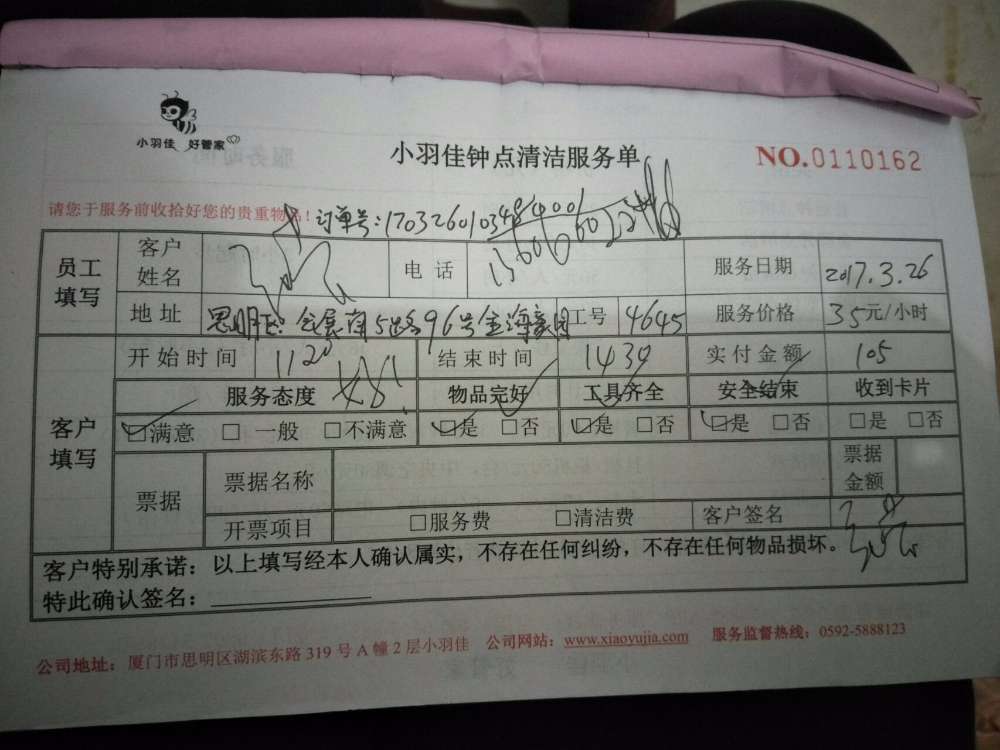 小羽佳 好管家
小羽佳钟点清洁服务单
NO.0110162
请您于服务前收拾好您的贵重物品!
订单号:
员工填写
客户姓名
电话
服务日期 2017.3.26
地址 工号 4645 服务价格 35元/小时
开始时间 1120 结束时间 1430 实付金额 105
客户填写
服务态度 物品完好 工具齐全 安全结束 收到卡片
☑满意 □一般 □不满意 ☑是 □否 ☑是 □否 ☑是 □否 □是 □否
票据 票据名称 票据金额
开票项目 □服务费 □清洁费 客户签名
客户特别承诺：以上填写经本人确认属实，不存在任何纠纷，不存在任何物品损坏。
特此确认签名：
公司地址：厦门市思明区湖滨东路319号A幢2层小羽佳 公司网站：www.xiaoyujia.com 服务监督热线：0592-5888123